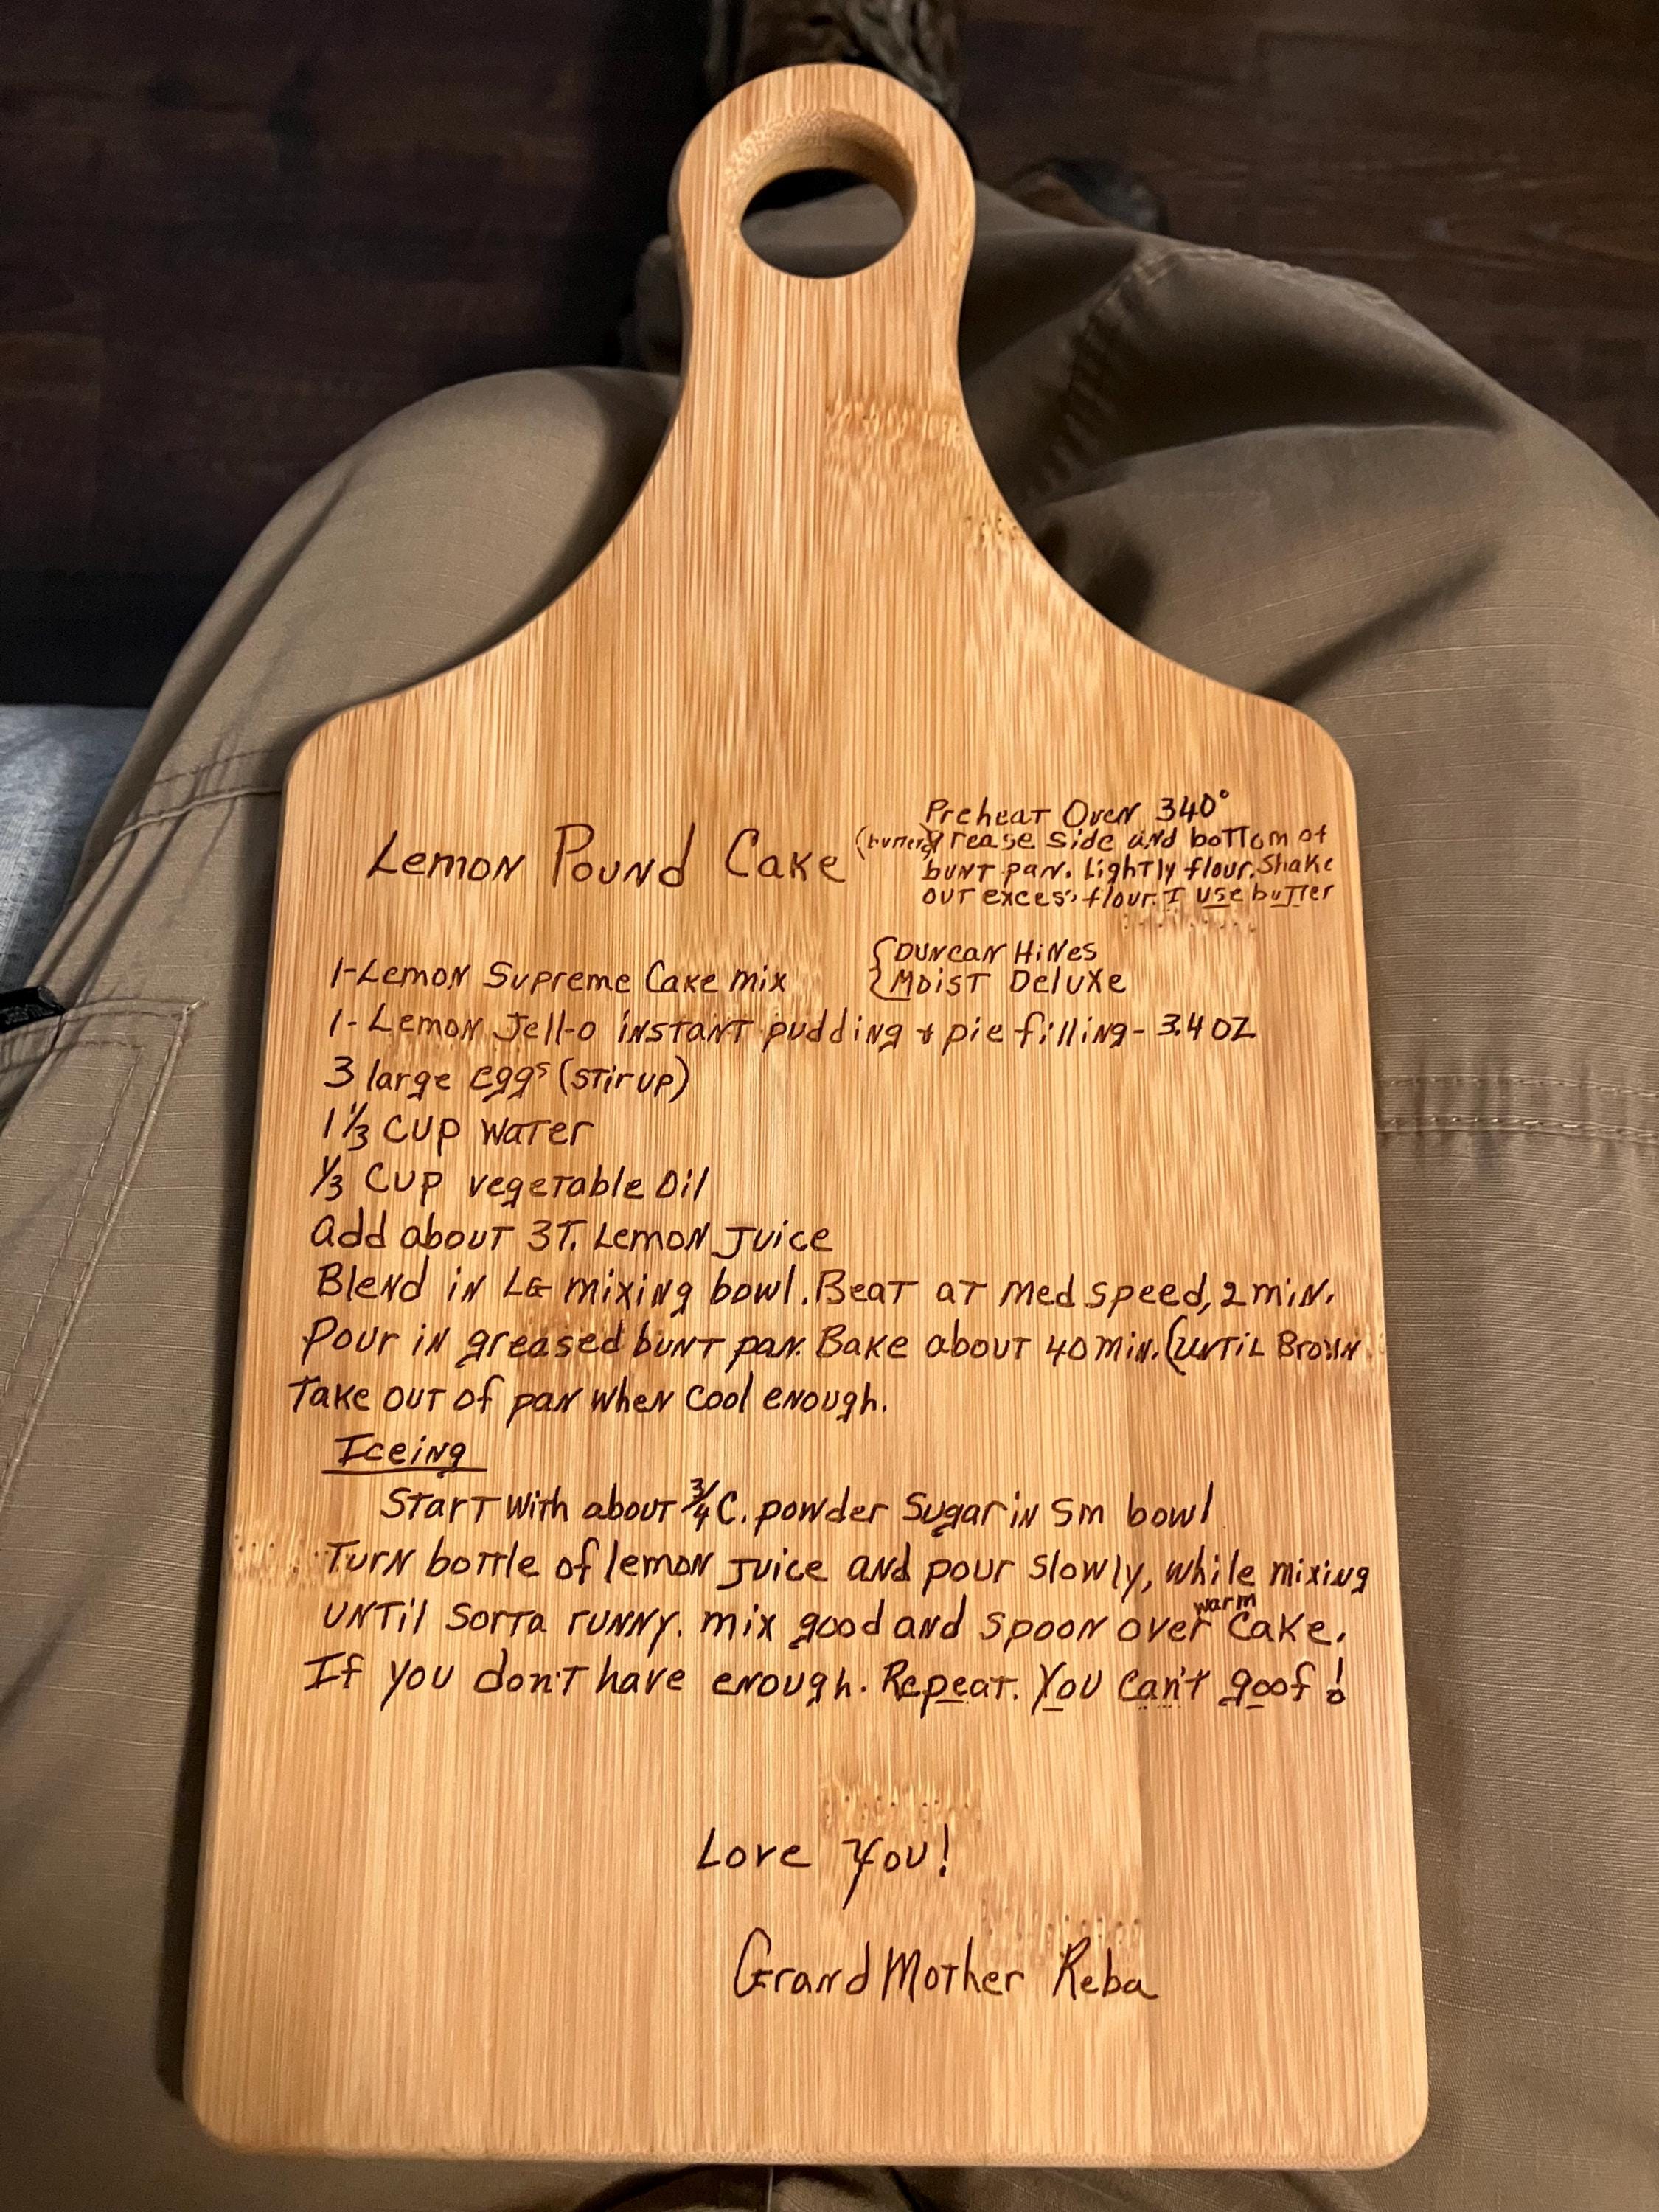 Preheat Oven 340°
Lemon Pound Cake (butter) grease side and bottom of
bunt pan. Lightly flour. Shake
out excess flour. I use butter
1-Lemon Supreme Cake mix { Duncan Hines
Moist Deluxe
1-Lemon Jell-o instant pudding + pie filling - 3.4 oz
3 large eggs (stir up)
1 1/3 cup water
1/3 Cup vegetable oil
add about 3T. Lemon Juice
Blend in LG mixing bowl. Beat at Med speed, 2 min.
Pour in greased bunt pan. Bake about 40 min. (until Brown
Take out of pan when cool enough.
Iceing
Start with about 3/4 C. powder Sugar in Sm bowl
Turn bottle of lemon juice and pour slowly, while mixing
until sorta runny. mix good and spoon over warm cake.
If you don't have enough. Repeat. You can't goof!
Love You!
GrandMother Reba